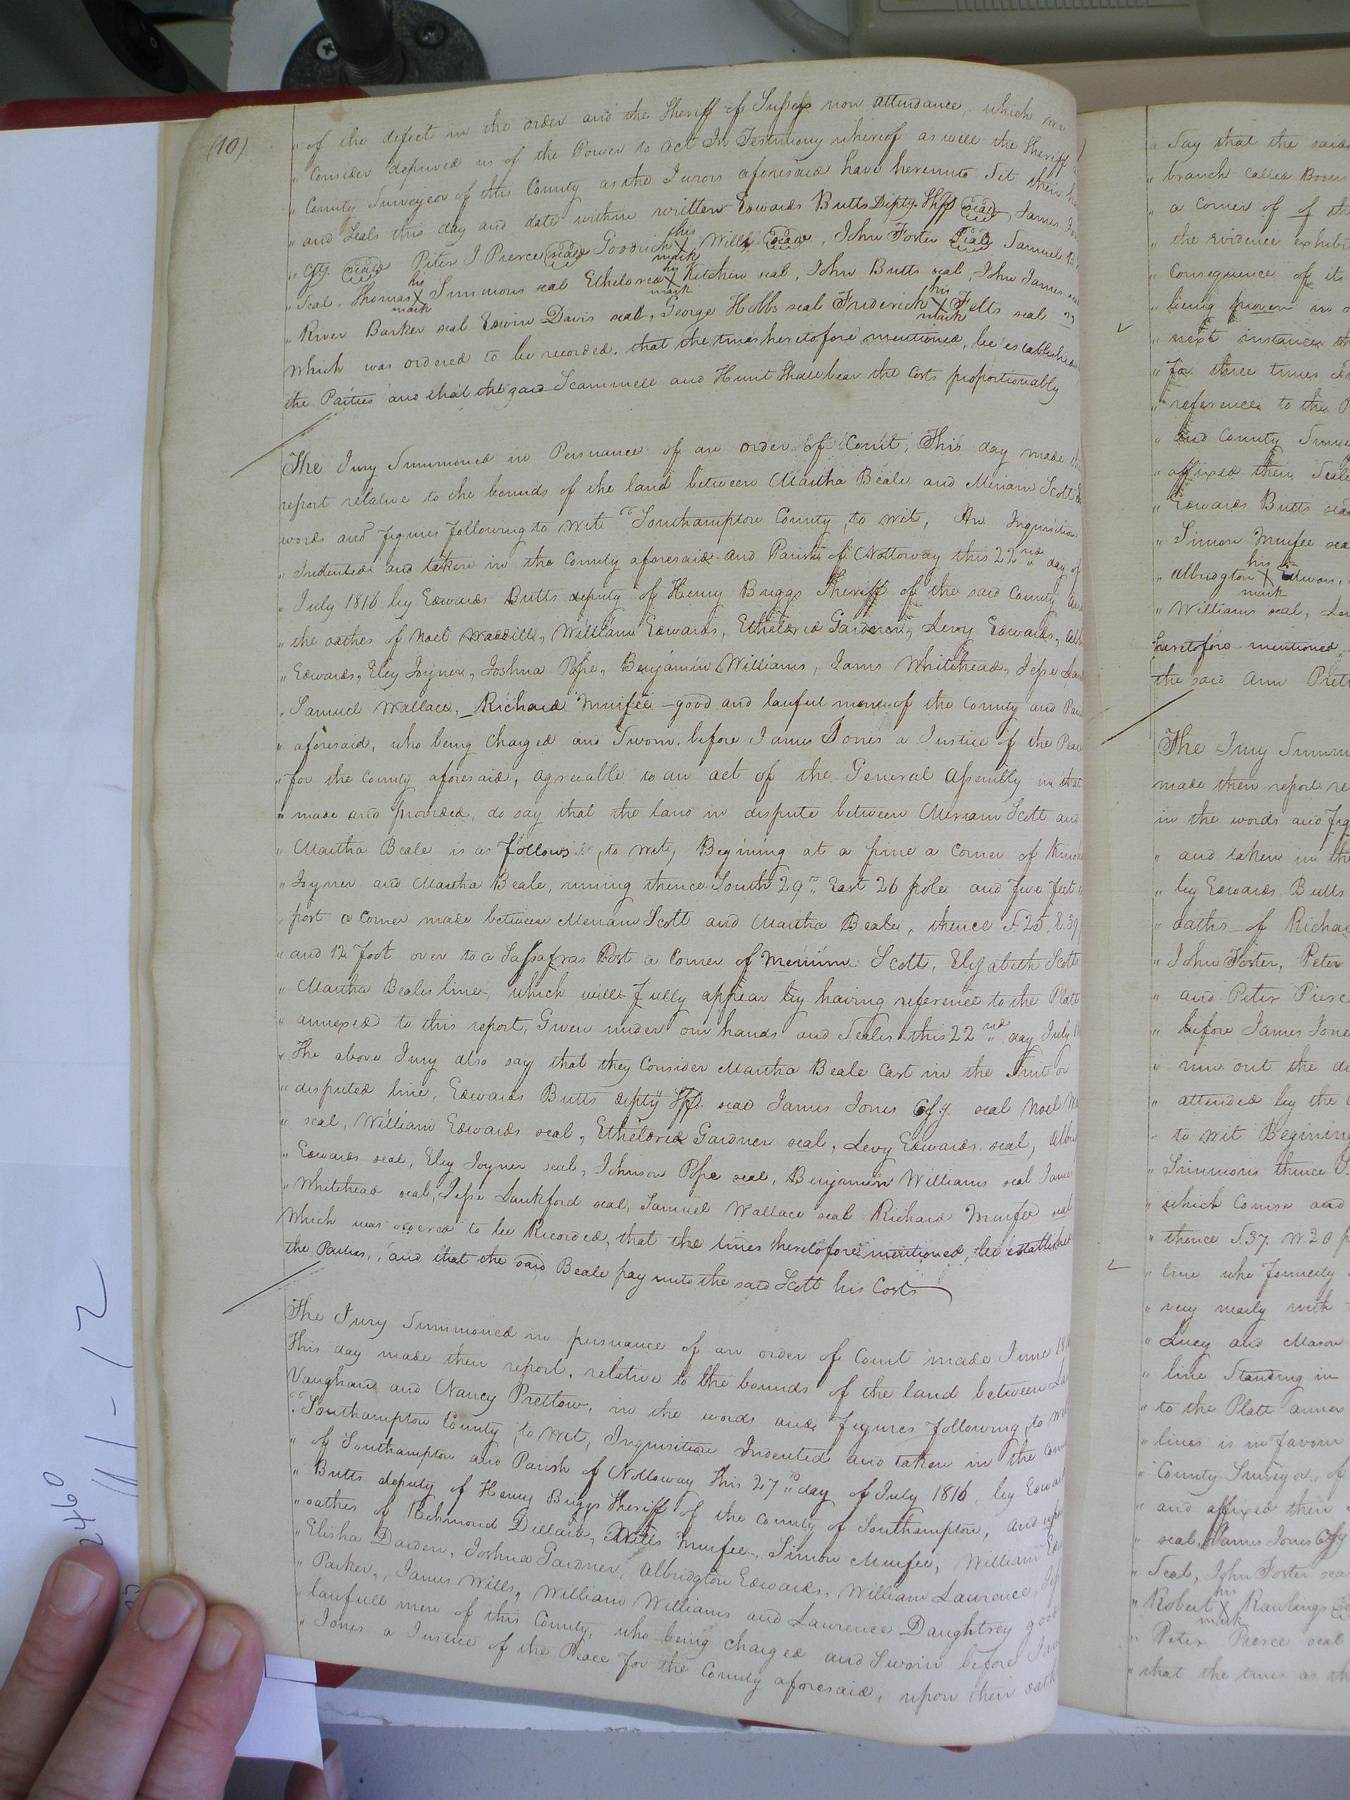 (10)
" of the defect in the order and the Sheriff of Sussex non attendance, which we
" Consider deprived us of the Power to act In Testimony whereof as well the Sheriff
" County Surveyor of this County as the Jurors aforesaid have hereunto Set their
" and Seals this day and date within written Edwards Butts Depty. Shff seal James
" Cfy. seal Peter J Pierce seal Goodrich his X mark Wills seal, John Foster seal Samuel
" Seal. Thomas his X mark Simmons seal Etheldred his X mark Kitchen seal, John Butts seal, John James seal
" River Barker seal Edwin Davis seal, George Hobbs seal Frederick his X mark Felts seal
Which was ordered to be recorded, that the lines heretofore mentioned, be established
the Parties and that the said Scammell and Hunt Shall bear the Costs proportionably
The Jury Summoned in Persuance of an order of Court, This day made
report relative to the bounds of the land between Martha Beale and Miriam Scott
words and figures following to wit "Southampton County, to wit, An Inquisition
" Indented and taken in the County aforesaid and Parish of Nottoway this 22nd day of
" July 1816 by Edwards Butts deputy of Henry Briggs Sheriff of the said County
" the oathes of Noel Waddill, William Edwards, Etheldred Gardner, Levy Edwards,
" Edwards, Eley Joyner, Joshua Pope, Benjamin Williams, James Whitehead, Jesse
" Samuel Wallace, Richard Murfee – good and lawful men of the County and
" aforesaid, who being Charged and Sworn, before James Jones a Justice of the Peace
" for the County aforesaid, agreeable to an act of the General Assembly in that
" made and provided, do say that the land in dispute between Miriam Scott and
" Martha Beale is as follows, to wit, Begining at a pine a Corner of
" Joyner and Martha Beale, runing thence South 29 East 26 poles and five feet
" port a Corner made between Meriam Scott and Martha Beale, thence S.25. E.39
" and 12 foot over to a Sassafras Post a Corner of Meriam Scott, Elizabeth Scott
" Martha Beales line, which will fully appear by having reference to the Platt
" annexed to this report, Given under our hands and Seales this 22nd day July
" The above Jury also say that they Consider Martha Beale Cast in the Suit or
" disputed line, Edwards Butts depty Shff. seal James Jones Cfy. seal Noel
" seal, William Edwards seal, Etheldred Gardner seal, Levy Edwards seal,
" Edwards seal, Eley Joyner seal, Johnson Pope seal, Benjamin Williams seal James
" Whitehead seal, Jesse Lankford seal, Samuel Wallace seal Richard Murfee seal
Which was ordered to be Recorded, that the lines heretofore mentioned, be established
the Parties, and that the said Beale pay unto the said Scott his Costs
The Jury Summoned in persuance of an order of Court made June
This day made their report, relative to the bounds of the land between
Vaughan and Nancy Pretlow, in the words and figures following, to wit
" Southampton County, to wit, Inquisition Indented and taken in the County
" of Southampton and Parish of Nottoway This 27 day of July 1816, by Edwards
" Butts deputy of Henry Briggs Sheriff of the County of Southampton, and upon
" oathes of Richmond Dillard, Miles Murfee, Simon Murfee, William
" Elisha Darden, Joshua Gardner, Albridgton Edwards, William Laurence,
" Parker, James Wills, William Williams and Laurence Daughtrey good
" lawfull men of this County, who being charged and Sworn before
" Jones a Justice of the Peace for the County aforesaid, upon their oath
" Say that the said
" branch called
" a corner of of the
" the evidence
" Consequence of its
" being proven
" next instance
" for three times
" reference to the
" and County
" affixed their
" Edwards Butts seal
" Simon Murfee
" Albridgton his X mark
" Williams seal,
heretofore mentioned,
the said Ann
The Jury
made their report
in the words and
" and taken in the
" by Edwards Butts
" oaths of
" John Foster, Peter
" and Peter Pierce
" before James Jones
" run out the
" attended by the
" to wit Begining
" Simmons thence
" which Course and
" thence S.37. W.20
" line who formerly
" very nearly with
" Lucy and Mason
" line Standing in
" to the Platt
" lines is in favour
" County Surveyor of
" and affixed their
" seal, James Jones Cfy
" Seal, John Foster
" Robert his X mark Rawlings
" Peter Pierce seal
" that the lines as
11-12
2460